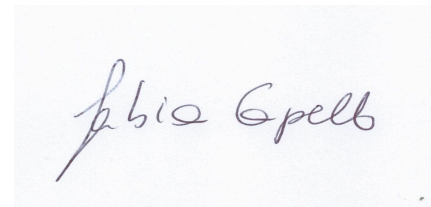 Fabio Capello